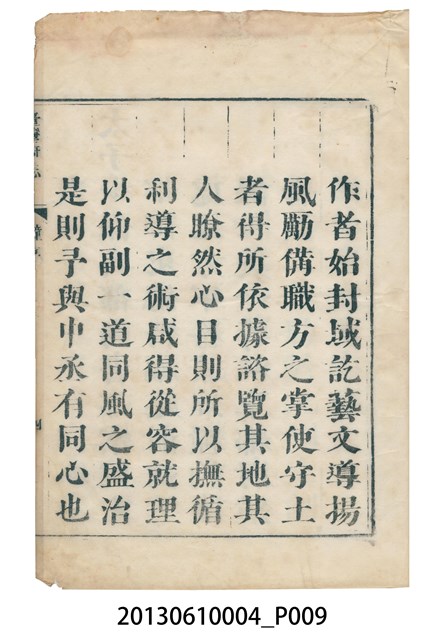 作者始封域訖藝文導揚
風勵備職方之掌使守土
者得所依據諮覽其地其
人瞭然心目則所以撫循
利導之術咸得從容就理
以仰副一道同風之盛治
是則予與中丞有同心也
20130610004_P009